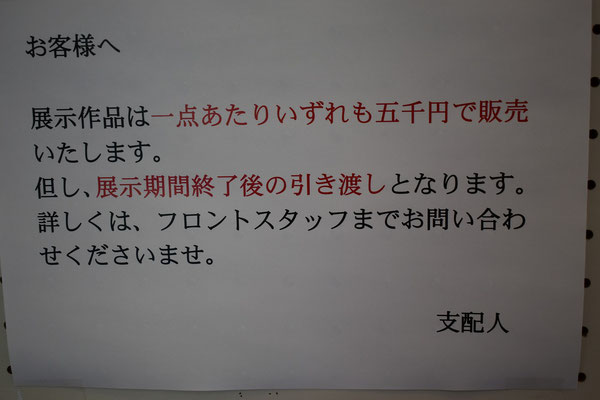 お客様へ
展示作品は一点あたりいずれも五千円で販売
いたします。
但し、展示期間終了後の引き渡しとなります。
詳しくは、フロントスタッフまでお問い合わ
せくださいませ。
支配人